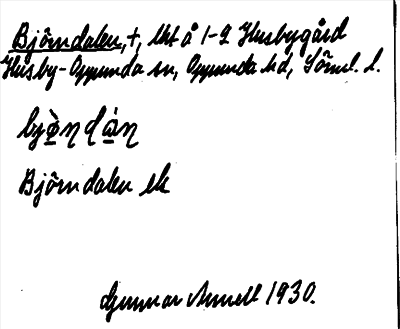 Björndalen, †, lht å 1-2 Husbygård
Husby-Oppunda sn, Oppunda hd, Södml. l.
bjǫ̀ndạ́n
Björndalen ek
Gunnar Arnell 1930.